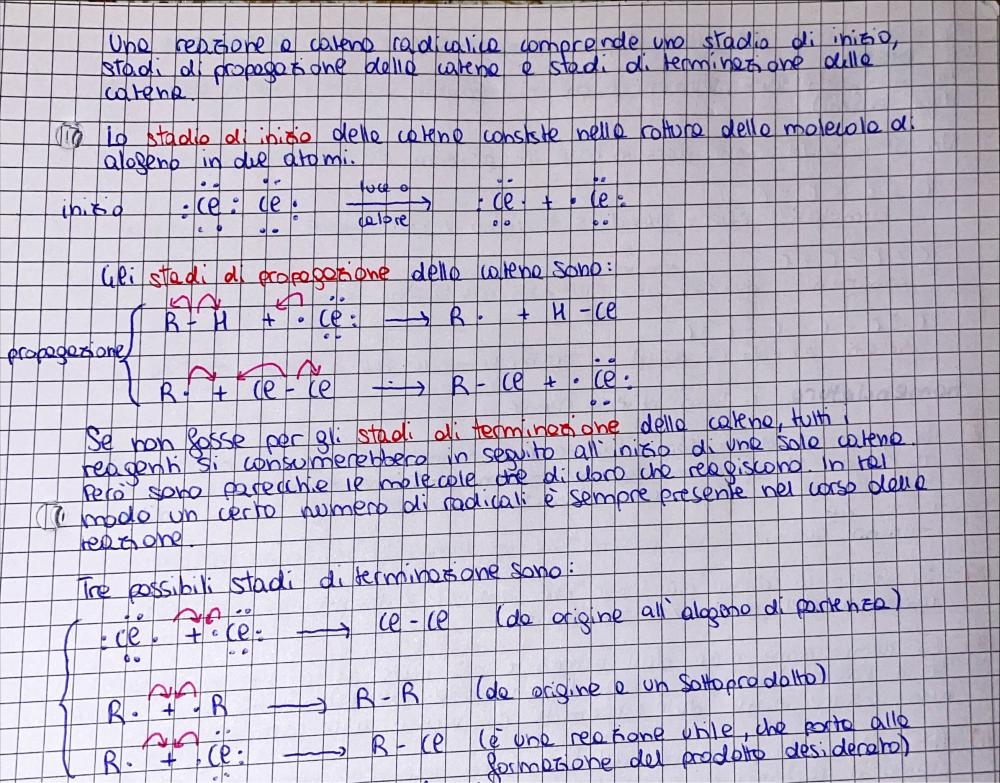 Una reazione a catena radicalica comprende uno stadio di inizio,
stadi di propagazione della catena e stadi di terminazione della
catena.
Lo stadio di inizio della catena consiste nella rottura della molecola di
alogeno in due atomi.
inizio :Cl: Cl: luce o calore → :Cl· + ·Cl:
Gli stadi di propagazione della catena sono:
propagazione
R-H + ·Cl: → R· + H-Cl
R· + Cl-Cl → R-Cl + ·Cl:
Se non fosse per gli stadi di terminazione della catena, tutti i
reagenti si consumerebbero in seguito all'inizio di una sola catena.
Però sono parecchie le molecole che di cloro che reagiscono. In tal
modo un certo numero di radicali è sempre presente nel corso della
reazione.
Tre possibili stadi di terminazione sono:
:Cl· + ·Cl: → Cl-Cl (da origine all'alogeno di partenza)
R· + ·R → R-R (da origine a un sottoprodotto)
R· + ·Cl: → R-Cl (è una reazione utile, che porta alla
formazione del prodotto desiderato)